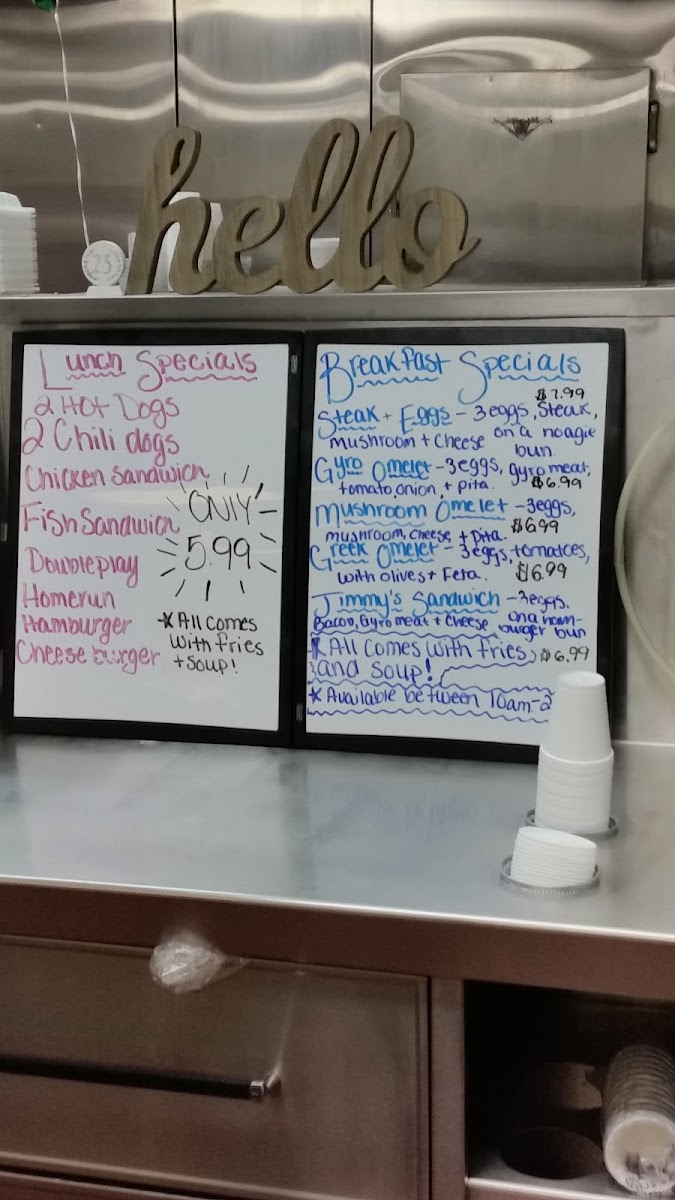 hello
25
Lunch Specials
2 Hot Dogs
2 Chili dogs
Chicken Sandwich
Fish Sandwich
Doubleplay
Homerun
Hamburger
Cheese burger
ONLY
5.99
* All comes
with fries
+ soup!
Breakfast Specials
$7.99
Steak + Eggs - 3 eggs, Steak,
mushroom + cheese on a hoagie
bun.
Gyro Omelet - 3 eggs, gyro meat,
tomato, onion, + pita. $6.99
Mushroom Omelet - 3 eggs,
mushroom, cheese, + pita. $6.99
Greek Omelet - 3 eggs, tomatoes,
with olives + Feta. $6.99
Jimmy's Sandwich - 3 eggs,
Bacon, Gyro meat + cheese on a ham-
burger bun
* All comes with fries $6.99
and soup!
* Available between 10am-2